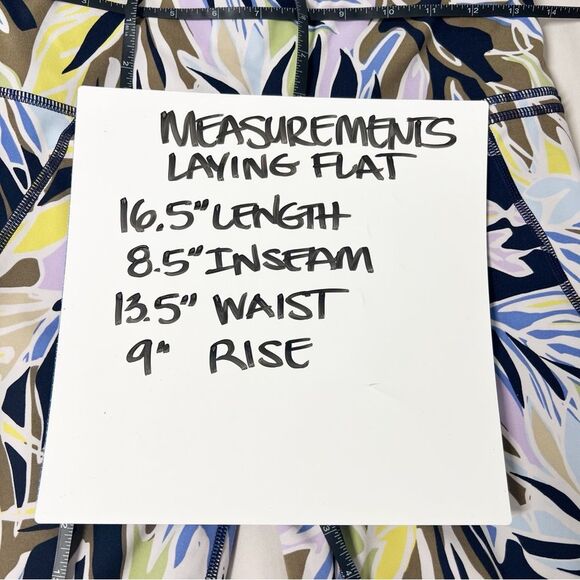 MEASUREMENTS
LAYING FLAT
16.5" LENGTH
8.5" INSEAM
13.5" WAIST
9" RISE